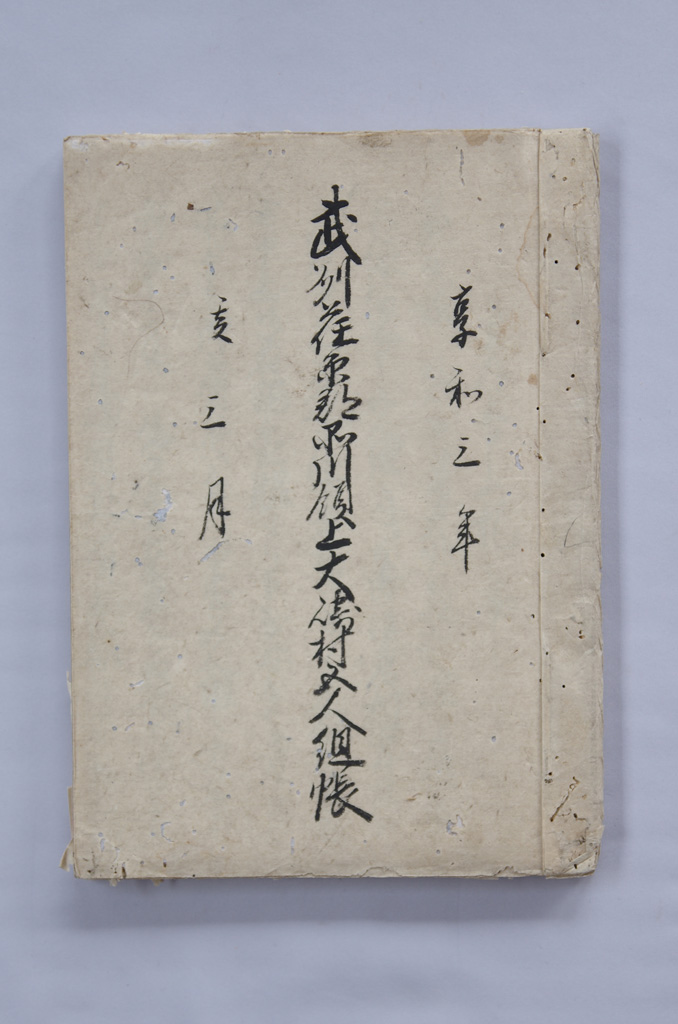 享和三年
武州荏原郡品川領上大崎村五人組帳
亥三月